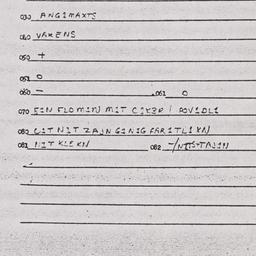 030 ANGIMAXTS
040 VAKENS
050 +
051 O
060 — 061 O
070 FIN FLOMIN MIT CIKER / POVIDLI
080 CIT NIT ZAJN GINIG FARITLIKN
081 NIT KLEKN 082